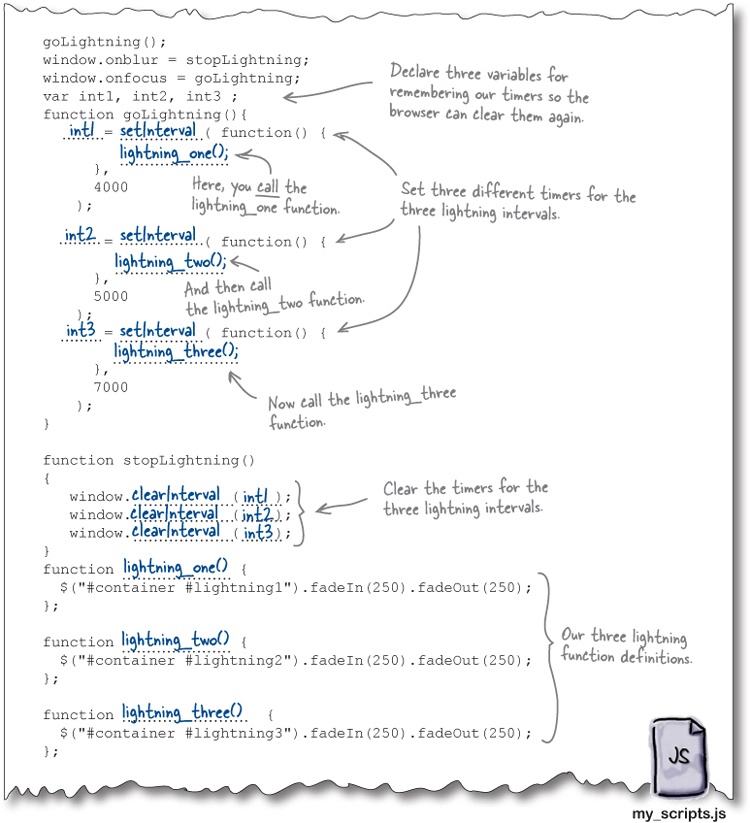 goLightning();
window.onblur = stopLightning;
window.onfocus = goLightning;
var int1, int2, int3 ;
Declare three variables for
remembering our timers so the
browser can clear them again.
function goLightning(){
int1 = setInterval ( function() {
lightning_one();
},
4000
);
Here, you call the
lightning_one function.
Set three different timers for the
three lightning intervals.
int2 = setInterval ( function() {
lightning_two();
},
5000
);
And then call
the lightning_two function.
int3 = setInterval ( function() {
lightning_three();
},
7000
);
Now call the lightning_three
function.
}
function stopLightning()
{
window.clearInterval (int1 );
window.clearInterval (int2 );
window.clearInterval (int3);
}
Clear the timers for the
three lightning intervals.
function lightning_one() {
$("#container #lightning1").fadeIn(250).fadeOut(250);
};
function lightning_two() {
$("#container #lightning2").fadeIn(250).fadeOut(250);
};
function lightning_three() {
$("#container #lightning3").fadeIn(250).fadeOut(250);
};
Our three lightning
function definitions.
JS
my_scripts.js